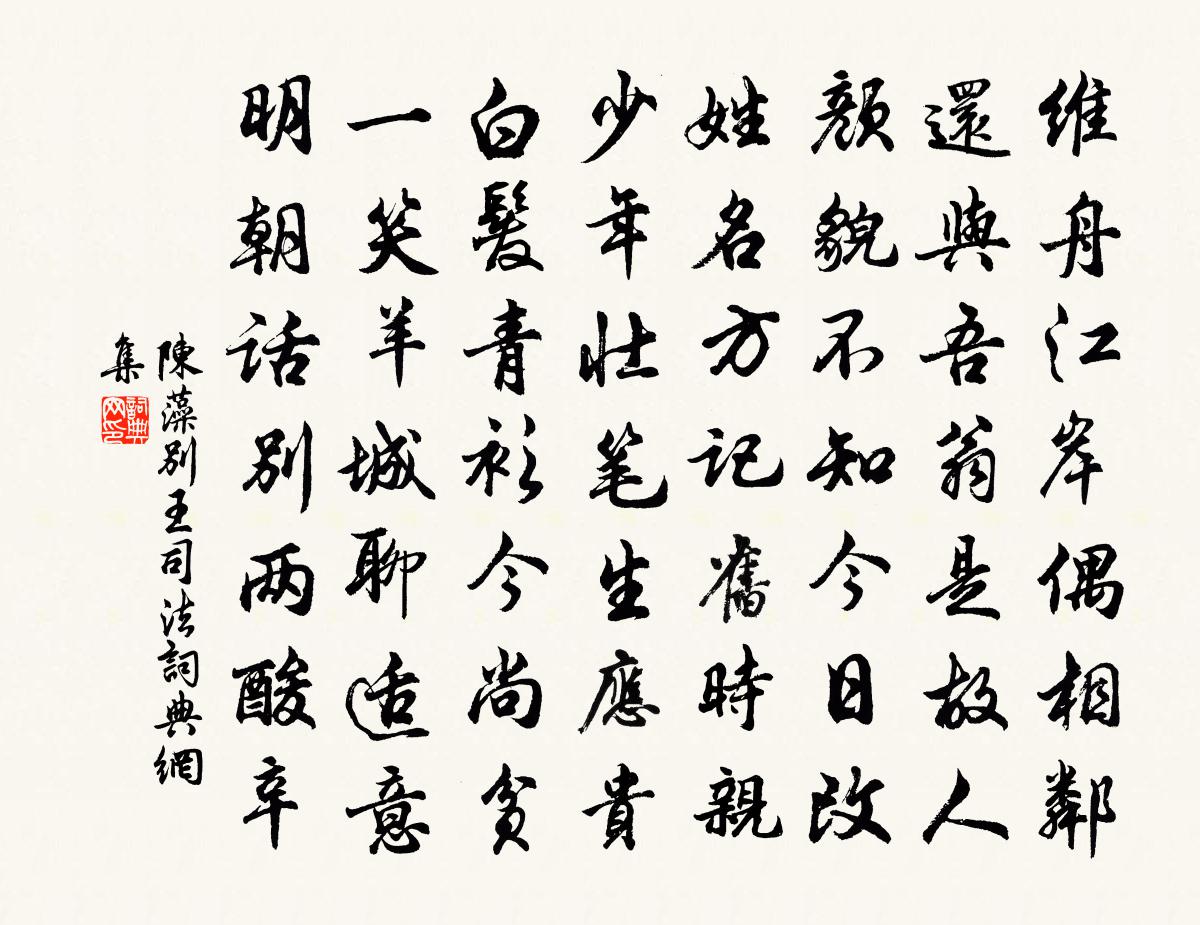 维舟江岸偶相鄰
還與吾翁是故人
顏貌不知今日改
姓名方記舊時親
少年壮笔生應貴
白髮青衫今尚貧
一笑羊城聊适意
明朝话别两酸辛
陳藻别王司法詞典網
集
詞典网印